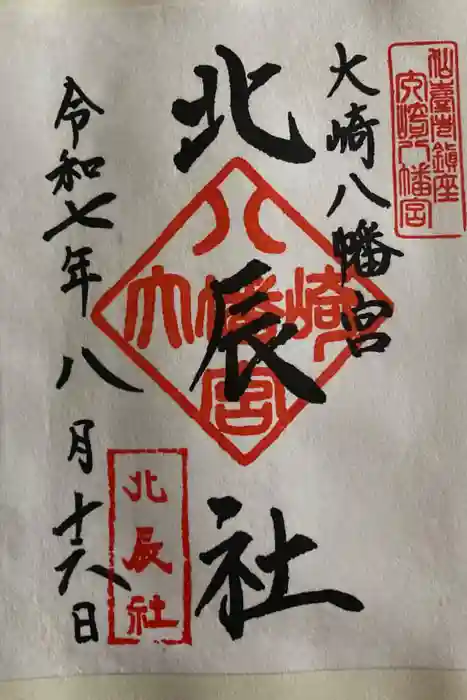 仙臺 鎮座
大崎八幡宮
大崎八幡宮
北辰社
八
大幡崎
宮
北辰社
令和七年八月十六日